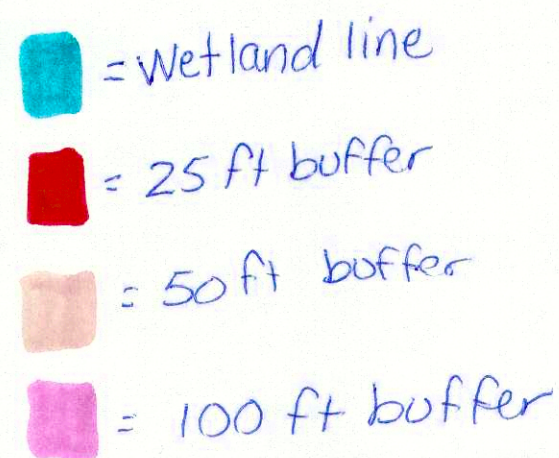 = Wetland line
= 25 ft buffer
= 50 ft buffer
= 100 ft buffer